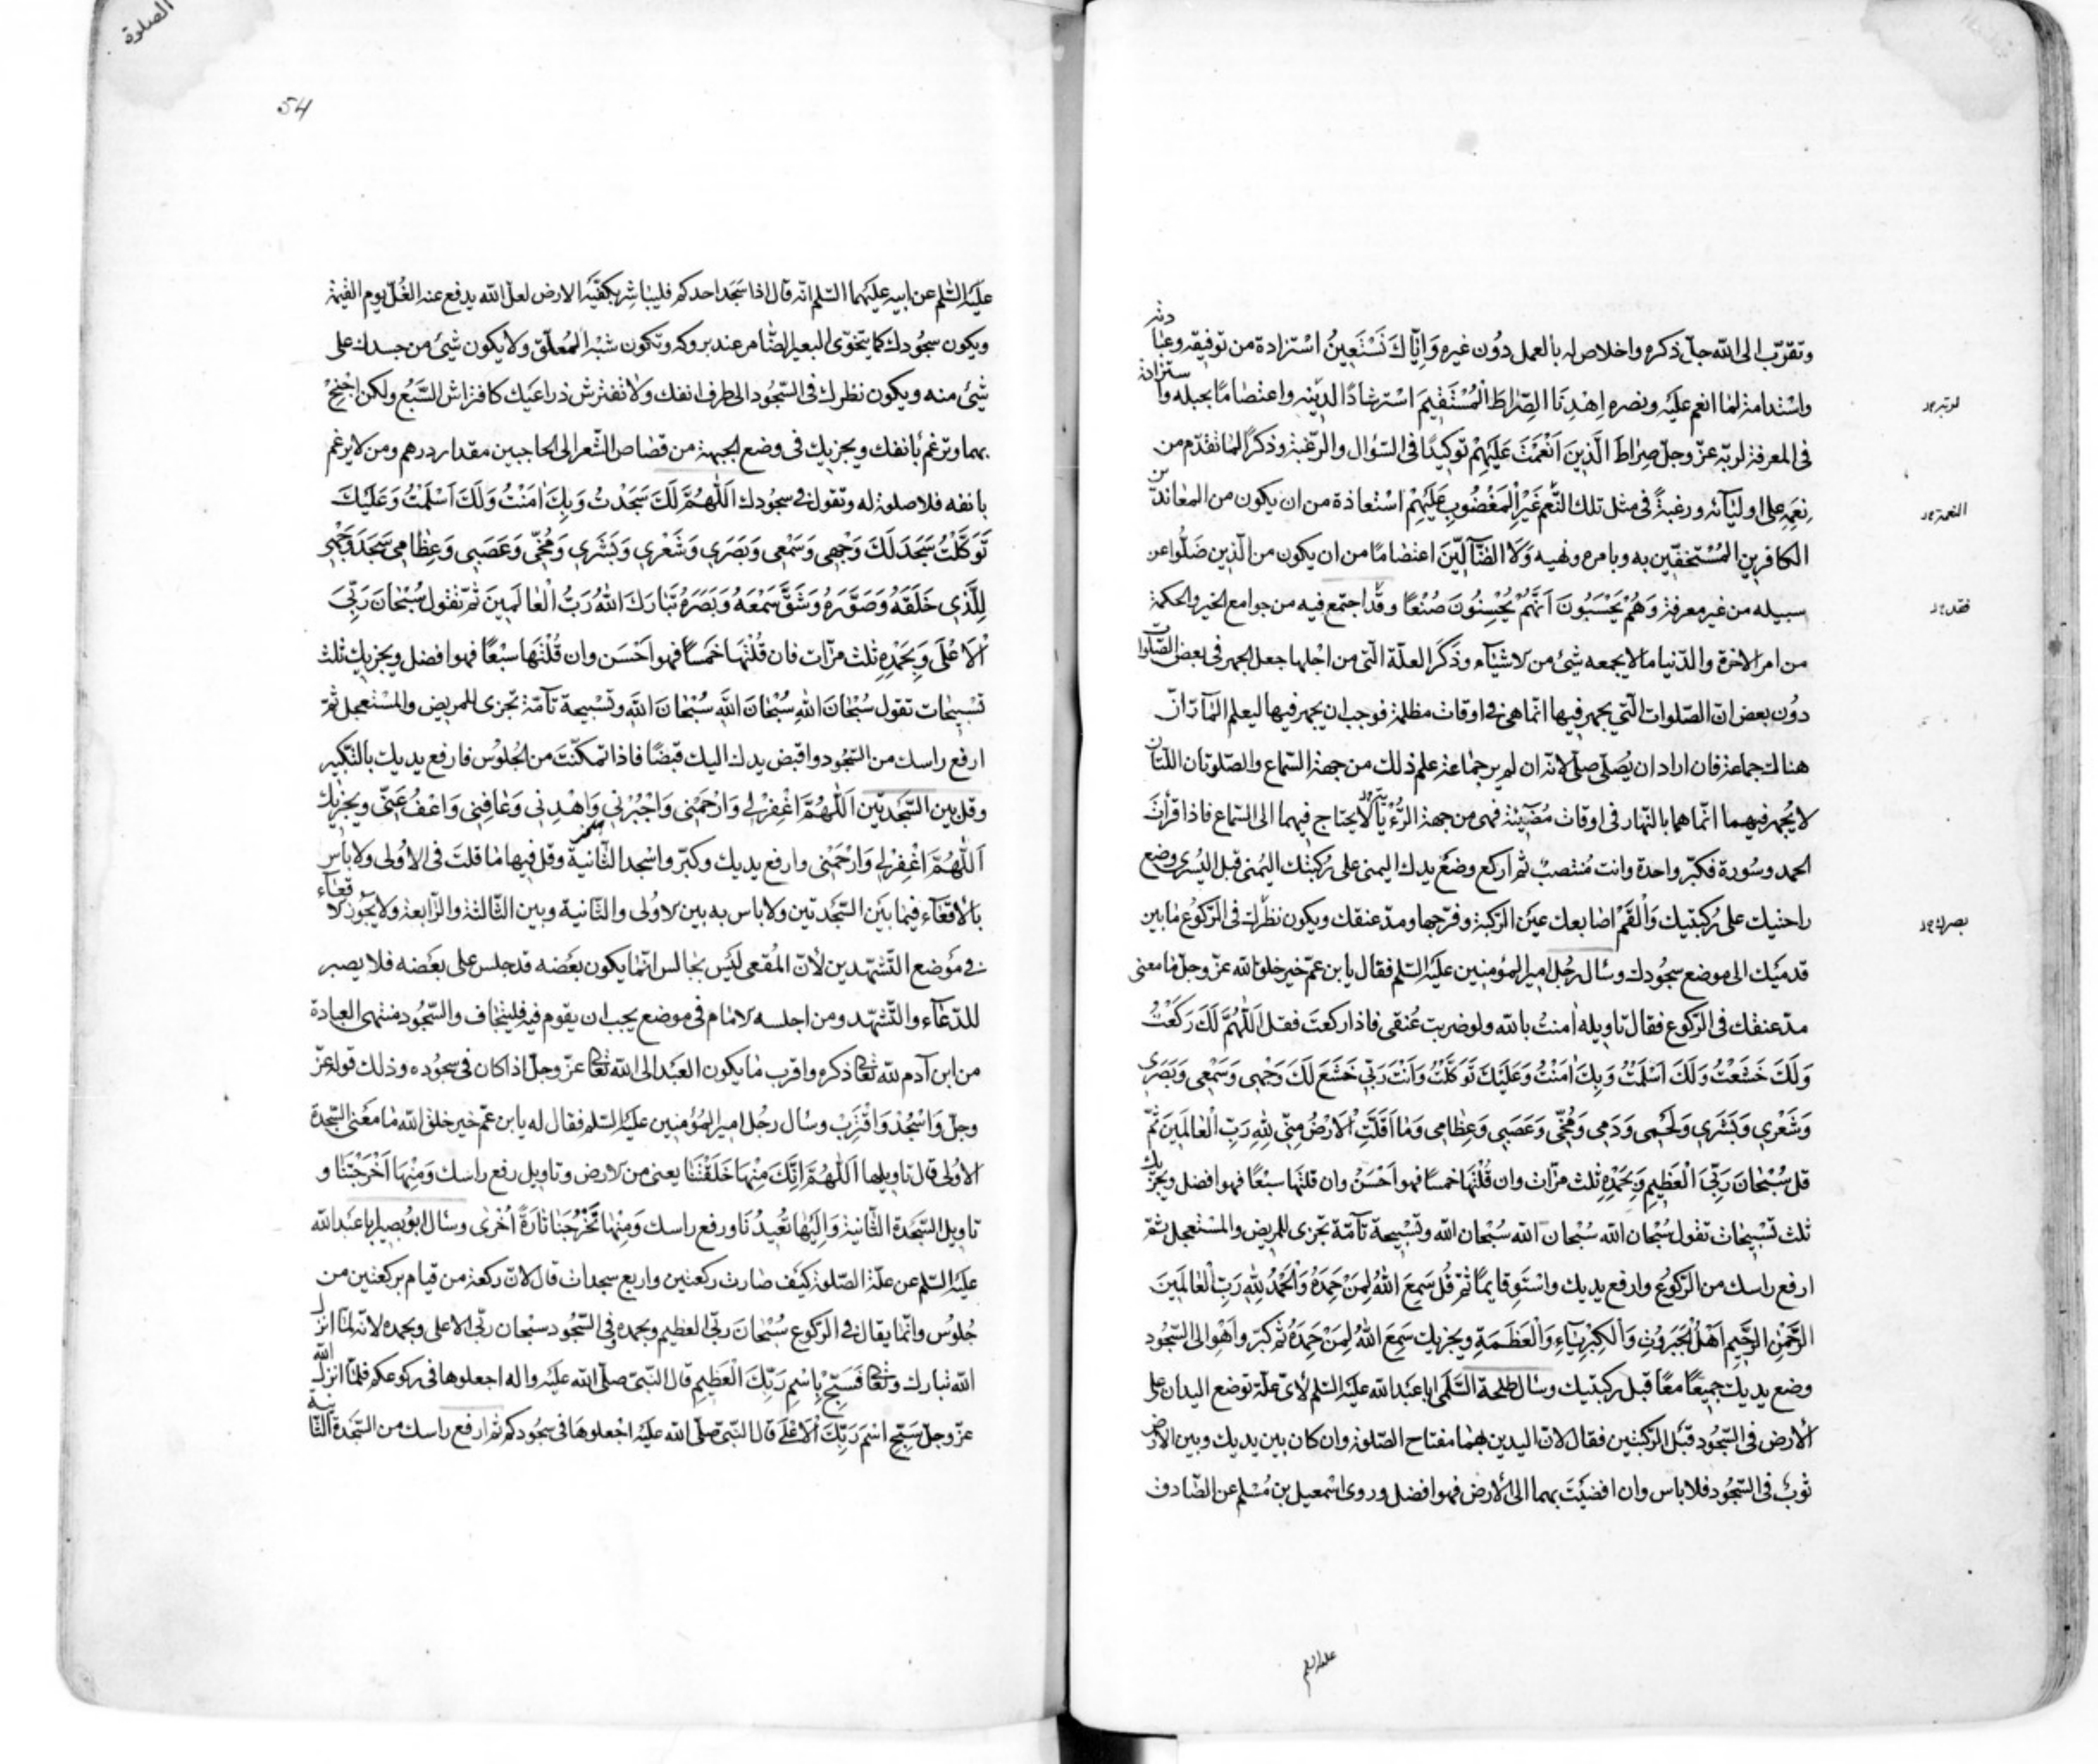 وتقرّب الى الله جلّ ذكره واخلاص له بالعمل دُون غيره وَاِيّاكَ نَسْتَعِينُ اسْتزادة من توفيقه وعبادته
واسْتدامة لما انعم عليه ونصره اِهْدِنَا الصِّرَاطَ الْمُسْتَقِيمَ اسْترشادًا لدينه واعتصامًا بحبله واستزادة
فى المعرفة لربّه عزّ وجلّ صِرَاطَ الَّذِينَ اَنْعَمْتَ عَلَيْهِمْ توكيدًا فى السّؤال والرّغبة وذكرًا لما تقدّم من
نِعَمِه على اوليآئه ورغبةً فى مثل تلك النّعم غَيْرِ الْمَغْضُوبِ عَلَيْهِمْ اسْتعاذة من ان يكون من المعاندين
الكافرين المُسْتخفّين به وبامره ونهيه وَلَا الضَّآلِّينَ اعتصامًا من ان يكون من الّذين ضَلُّوا عن
سبيله من غير معرفة وَهُمْ يَحْسَبُونَ اَنَّهُمْ يُحْسِنُونَ صُنْعًا وقد اجتمع فيه من جوامع الخير والحكمة
من امر الاخرة والدّنيا ما لا يجمعه شئ من الاشيآء وذَكَرَ العلّة الّتى من اجْلها جعل الجهر فى بعض الصّلوات
دُون بعض انّ الصّلوات الّتى يجهر فيها انّما هى فى اوقات مظلمة فوجب ان يجهر فيها ليعلم المآرّ انّ
هناك جماعة فان اراد ان يُصَلّى صلّى لانّه ان لم ير جماعة علم ذلك من جهة السّماع والصّلوتان اللّتان
لا يُجهر فيهما انّما هما بالنّهار فى اوقات مُضيئة فهى من جهة الرُّؤْية لا يحتاج فيهما الى السّماع فاذا قرأت
الحمد وسُورة فكبّر واحدة وانت مُنتصبٌ ثم اركع وضَعْ يدك اليمنى على رُكبتك اليُمنى قبل اليُسرى وضع
راحتيك على رُكبتيك وَاَلْقَمْ اصابعك عيْن الرّكبة وفرّجها ومدّ عنقك ويكون نظرك فى الرّكُوع ما بين
قدميْك الى موضع سجُودك وسأل رجُل امير المؤمنين عليه السّلم فقال يا بن عمّ خير خلق الله عزّ وجلّ ما معنى
مدّ عنقك فى الرّكُوع فقال تاويله اٰمنتُ بالله ولو ضربت عُنقى فاذا ركعتَ فقل اَللّٰهُمَّ لَكَ رَكَعْتُ
وَلَكَ خَشَعْتُ وَلَكَ اَسْلَمْتُ وَبِكَ اٰمَنْتُ وَعَلَيْكَ تَوَكَّلْتُ وَاَنْتَ رَبِّى خَشَعَ لَكَ وَجْهِى وَسَمْعِى وَبَصَرِى
وَشَعْرِي وَبَشَرِي وَلَحْمِى وَدَمِى وَمُخّى وَعَصَبِى وَعِظَامِى وَمَا اَقَلَّتِ الْاَرْضُ مِنِّى لِلّٰهِ رَبِّ الْعٰالَمِينَ ثمّ
قل سُبْحَانَ رَبِّىَ الْعَظِيمِ وَبِحَمْدِهِ ثلث مرّات وان قُلْتَها خمسًا فهو اَحْسَنُ وان قلتَها سبْعًا فهو افضل ويجزيك
ثلث تَسْبيحات تقول سُبْحان الله سُبْحان الله سُبْحان الله وتَسْبيحة تآمّة تجزى للمريض والمسْتعجل ثمّ
ارفع راسك من الرّكُوع وارفع يديك واسْتَوِ قايمًا ثمّ قُل سَمِعَ اللهُ لِمَنْ حَمِدَهُ وَالْحَمْدُ لِلّٰهِ رَبِّ الْعٰالَمِينَ
الرَّحْمٰنِ الرَّحِيمِ اَهْلُ الْجَبَرُوتِ وَالْكِبْرِيَآءِ وَالْعَظَمَةِ ويجزيك سَمِعَ اللهُ لِمَنْ حَمِدَهُ ثم كبّر واَهْوِ الى السّجُود
وضع يديك جميعًا معًا قبل ركبتيك وسأل طلحة السّلمى ابا عبْد الله عليه السّلم لاىّ علّة توضع اليدان على
الأرض فى السّجُود قبْل الرّكبتين فقال لانّ اليدين بهما مفتاح الصّلوة وان كان بين يديك وبين الارض
ثوبٌ فى السّجُود فلا باس وان افضيْتَ بهما الى الأرض فهو افضل وروى اسْمعيل بن مُسْلم عن الصّادق
بصرك
عليه السلم
الصلوة
54
عليْه السّلم عن ابيه عليْهما السّلم انّه قال اذا سَجَد احدكم فليباشر بكفّيْه الارض لعلّ الله يدفع عنه الغُلّ يوم القيٰمة
ويكون سجُودك كما يتخوّى البعير الضّامر عند بروكه وتكون شبْه المُعلّق ولا يكون شئ من جسدك على
شئ منه ويكون نظرك فى السّجُود الى طرف انفك ولا تفترش ذراعَيك كافتراش السَّبُع ولكن اجْنحْ
بهما وترغم بأنفك ويجزيك فى وضع الجبهة من قصاص الشّعر الى الحاجبين مقدار درهم ومن لا يرغم
بانفه فلا صلوة له وتقول فى سجُودك اَللّٰهُمَّ لَكَ سَجَدْتُ وَبِكَ اٰمَنْتُ وَلَكَ اَسْلَمْتُ وَعَلَيْكَ
تَوَكَّلْتُ سَجَدَ لَكَ وَجْهِى وَسَمْعِى وَبَصَرِي وَشَعْرِي وَبَشَرِي وَمُخِّى وَعَصَبِى وَعِظَامِى سَجَدَ وَجْهِى
لِلَّذِى خَلَقَهُ وَصَوَّرَهُ وَشَقَّ سَمْعَهُ وَبَصَرَهُ تَبَارَكَ اللهُ رَبُّ الْعٰالَمِينَ ثمّ تقول سُبْحَانَ رَبِّىَ
الْاَعْلَى وَبِحَمْدِهِ ثلث مرّات فان قُلْتَها خمَسًا فهو اَحْسَن وان قُلْتَها سبْعًا فهو افضل ويجزيك ثلث
تسْبيحات تقول سُبْحَانَ اللهِ سُبْحَانَ اللهِ سُبْحَانَ اللهِ وتَسْبيحة تآمّة تجزى للمريض والمسْتعجل ثمّ
ارفع راسك من السّجُود واقبض يدك اليك قبْضًا فاذا تمكّنْتَ من الجُلُوس فارفع يديك بالتّكبير
وقل بين السّجَدتين اَللّٰهُمَّ اغْفِرْ لِى وَارْحَمْنِى وَاجْبُرْنِى وَاهْدِنِى وَعَافِنِى وَاعْفُ عَنّى ويجزيك
اَللّٰهُمَّ اغْفِرْ لِى وَارْحَمْنِى وارفع يديك وكبّر واسْجد الثّانية وقل فيها ما قلتَ فى الاُولى ولا باس
بالاقعآء فيما بيْن السّجَدتين ولا باس به بين الاولى والثّانية وبين الثّالثة والرّابعة ولا يجُوز الاقعآء
فى موْضع التّشهّدين لأنّ المُقعى ليْس بجالس انّما يكون بعْضه قد جلس على بعْضه فلا يصبر
للدّعآء والتّشهّد ومن اجلسه الامام فى موضع يجب ان يقوم فيه فليتجاف والسّجُود منتهى العبادة
من ابن آدم لله تعالى ذكره واقرب ما يكون العبْد الى الله تعالى عزّ وجلّ اذا كان فى سجُوده وذلك قوله عزّ
وجلّ وَاسْجُدْ وَاقْتَرِبْ وسأل رجُل امير المُؤْمنين عليْه السّلم فقال له يا بن عمّ خير خلق الله ما معْنى السّجدة
الاُولى قال تاويلها اَللّٰهُمَّ اِنَّكَ مِنْهَا خَلَقْتَنَا يعنى من الارض وتاويل رفع راسك وَمِنْهَا اَخْرَجْتَنَا و
تاويل السّجَدة الثّانية وَاِلَيْهَا تُعِيدُنَا ورفع راسك وَمِنْهَا تُخْرِجُنَا تَارَةً اُخْرٰى وسأل ابُو بصير ابا عَبْد الله
عليْه السّلم عن علّة الصّلوة كيْف صارت ركعتين واربع سجدات قال لانّ ركعة من قيام بركعتين من
جُلوُس وانّما يقال فى الرّكوع سُبْحَانَ ربّى العظيم وبحمده وفى السّجُود سبْحان ربّى الاعلى وبحمده لانّه لمّا انزل
الله تبارك وتعالى فَسَبِّحْ بِاسْمِ رَبِّكَ الْعَظِيمِ قال النّبىّ صلّى الله عليْه واله اجعلوها فى ركوعكم فلمّا انزل الله
عزّ وجلّ سَبِّحِ اسْمَ رَبِّكَ الْاَعْلَى قال النّبىّ صلّى الله عليْه اجْعلوهَا فى سجُودكم ثم ارفع راسك من السّجَدة الثّانية